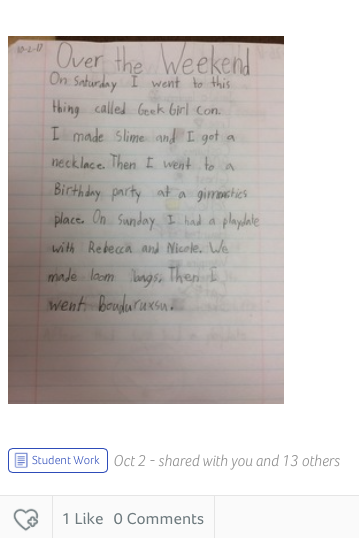 10-2-17
Over the Weekend
On Saturday I went to this
thing called Geek Girl Con.
I made Slime and I got a
necklace. Then I went to a
Birthday party at a gimnastics
place. On Sunday I had a playdate
with Rebecca and Nicole. We
made loom Then I
went
Student Work
Oct 2 - shared with you and 13 others
1 Like 0 Comments